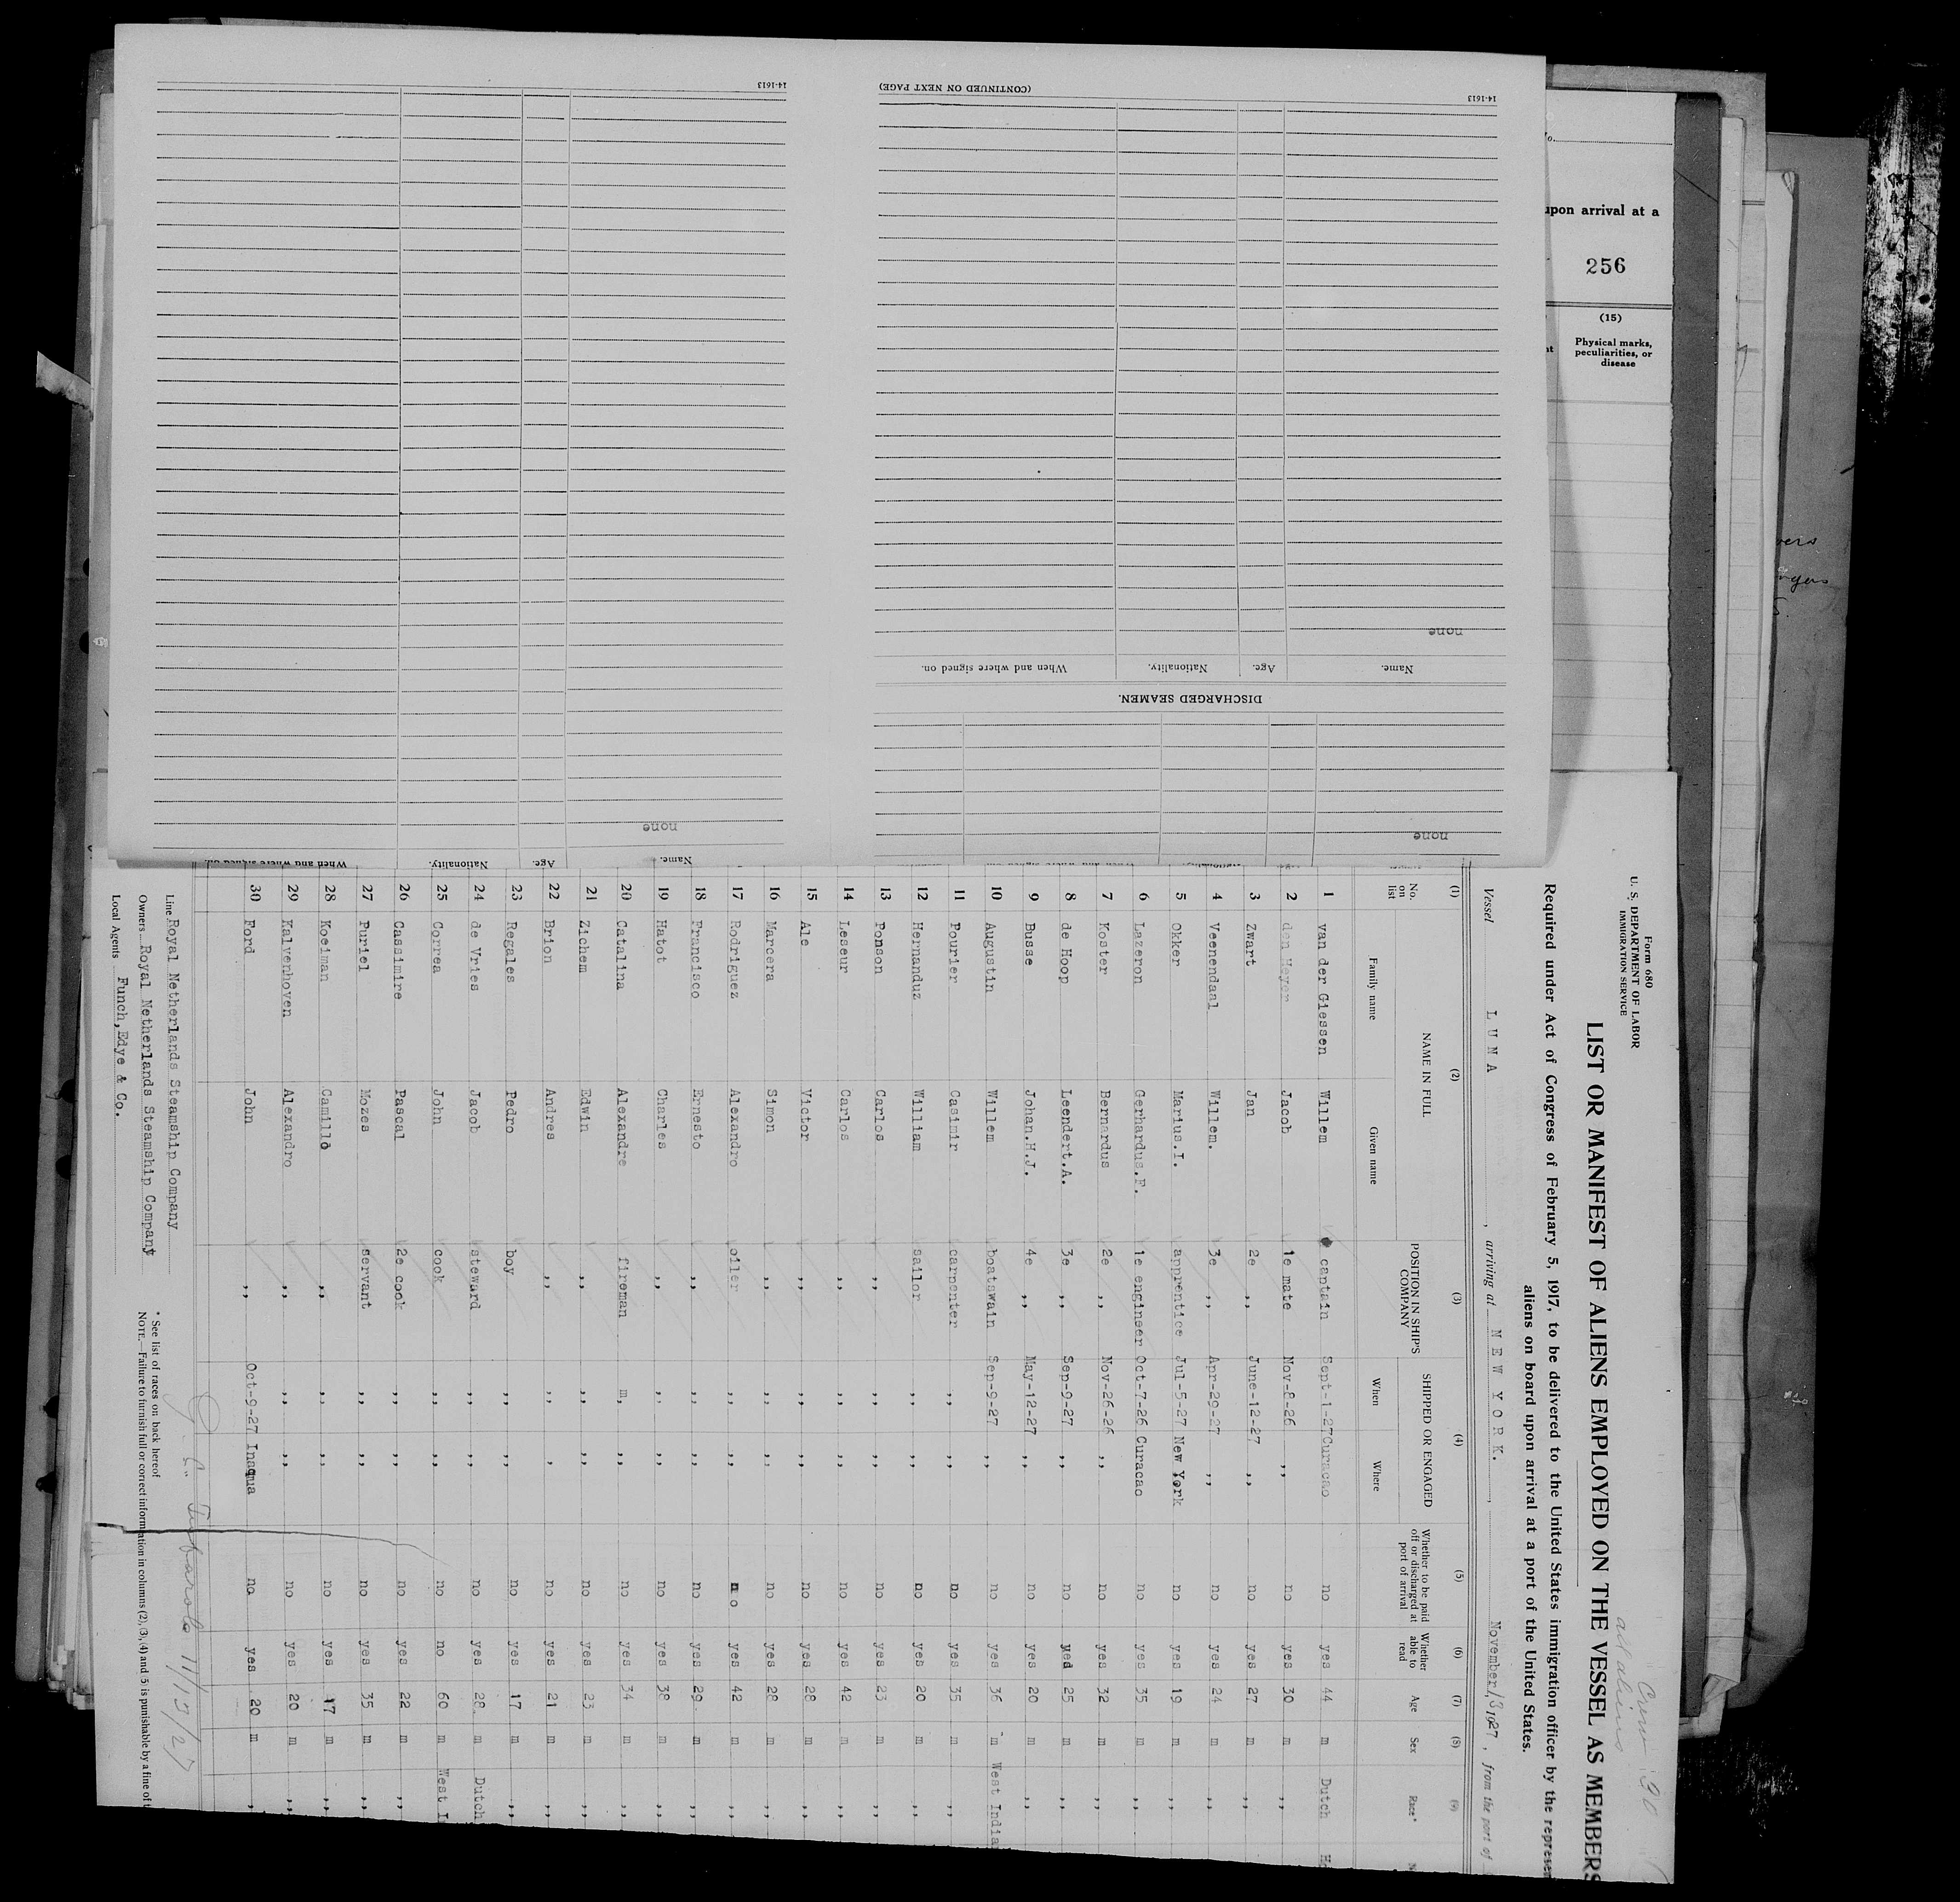 14-1613
(CONTINUED ON NEXT PAGE)
14-1613
none
Name.
Age.
Nationality.
When and where signed on.
DISCHARGED SEAMEN.
none
none
Name.
Age.
Nationality.
When and where signed on.
upon arrival at a
256
(15)
Physical marks,
peculiarities, or
disease
Form 680
U. S. DEPARTMENT OF LABOR
IMMIGRATION SERVICE
Crew 30
all aliens
LIST OR MANIFEST OF ALIENS EMPLOYED ON THE VESSEL AS MEMBERS
Required under Act of Congress of February 5, 1917, to be delivered to the United States immigration officer by the represen
aliens on board upon arrival at a port of the United States.
Vessel LUNA, arriving at NEW YORK., November 13 1927, from the port of
(1) (2) (3) (4) (5) (6) (7) (8) (9)
No. on list NAME IN FULL POSITION IN SHIP'S COMPANY SHIPPED OR ENGAGED Whether to be paid off or discharged at port of arrival Whether able to read Age Sex Race*
Family name Given name When Where
1 van der Giessen Willem captain Sept-1-27 Curacao no yes 44 m Dutch Ho
2 den Heyer Jacob 1e mate Nov-8-26 ,, no yes 30 m ,,
3 Zwart Jan 2e ,, June-12-27 ,, no yes 27 m ,,
4 Veenendaal Willem. 3e ,, Apr-29-27 ,, no yes 24 m ,,
5 Okker Marius.I. apprentice Jul-5-27 New York no yes 19 m ,,
6 Lazeron Gerhardus.F. 1e engineer Oct-7-26 Curacao no yes 35 m ,,
7 Koster Bernardus 2e ,, Nov-26-26 ,, no yes 32 m ,,
8 de Hoop Leendert.A. 3e ,, Sep-9-27 ,, no yed 25 m ,,
9 Busse Johan.H.J. 4e ,, May-12-27 ,, no yes 20 m ,,
10 Augustin Willem boatswain Sep-9-27 ,, no yes 36 m West India
11 Pourier Casimir carpenter ,, ,, no yes 35 m ,,
12 Hernanduz William sailor ,, ,, no yes 20 m ,,
13 Ponson Carlos ,, ,, ,, no yes 23 m ,,
14 Leseur Carlos ,, ,, ,, no yes 42 m ,,
15 Ale Victor ,, ,, ,, no yes 28 m ,,
16 Marcera Simon ,, ,, ,, no yes 28 m ,,
17 Rodriguez Alexandro oiler ,, ,, no yes 42 m ,,
18 Francisco Ernesto ,, ,, ,, no yes 29 m ,,
19 Hatot Charles ,, ,, ,, no yes 38 m ,,
20 Catalina Alexandre fireman m, ,, no yes 34 m ,,
21 Zichem Edwin ,, ,, ,, no yes 23 m ,,
22 Brion Andres ,, ,, , no yes 21 m ,,
23 Regales Pedro boy ,, ,, no yes 17 m ,,
24 de Vries Jacob steward ,, ,, no yes 28. m Dutch
25 Correa John cook ,, ,, no no 60 m West In
26 Cassimire Pascal 2e cook ,, ,, no yes 22 m ,,
27 Puriel Mozes servant ,, ,, no yes 35 m ,,
28 Koeiman Camillo ,, ,, ,, no yes 17 m ,,
29 Kalvenhoven Alexandro ,, ,, ,, no yes 20 m ,,
30 Ford John ,, Oct-9-27 Inaqua no yes 20 m ,
11/13/27
Line Royal Netherlands Steamship Company
Owners Royal Netherlands Steamship Company
Local Agents Funch, Edye & Co.
* See list of races on back hereof
NOTE.—Failure to furnish full or correct information in columns (2), (3), (4) and 5 is punishable by a fine of t